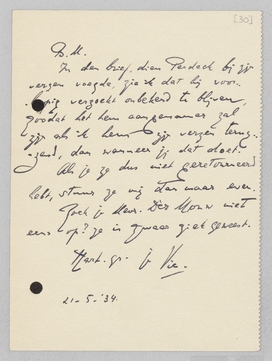 [30]
B. M.
In den brief, dien Perdeck bij zijn
verzen voegde, zie ik dat hij voor-
loopig verzoekt onbekend te blijven,
zoodat het hem aangenamer zal
zijn als ik hem zijn verzen terug-
zend, dan wanneer jij dat doet.
Als je ze dus niet geretourneerd
hebt, stuur ze mij dan maar even.
Zoek je Mevr. Der Mouw niet
eens op? Ze is zwaar ziek geweest.
Hart. gr. je Vic.
21-5-'34.